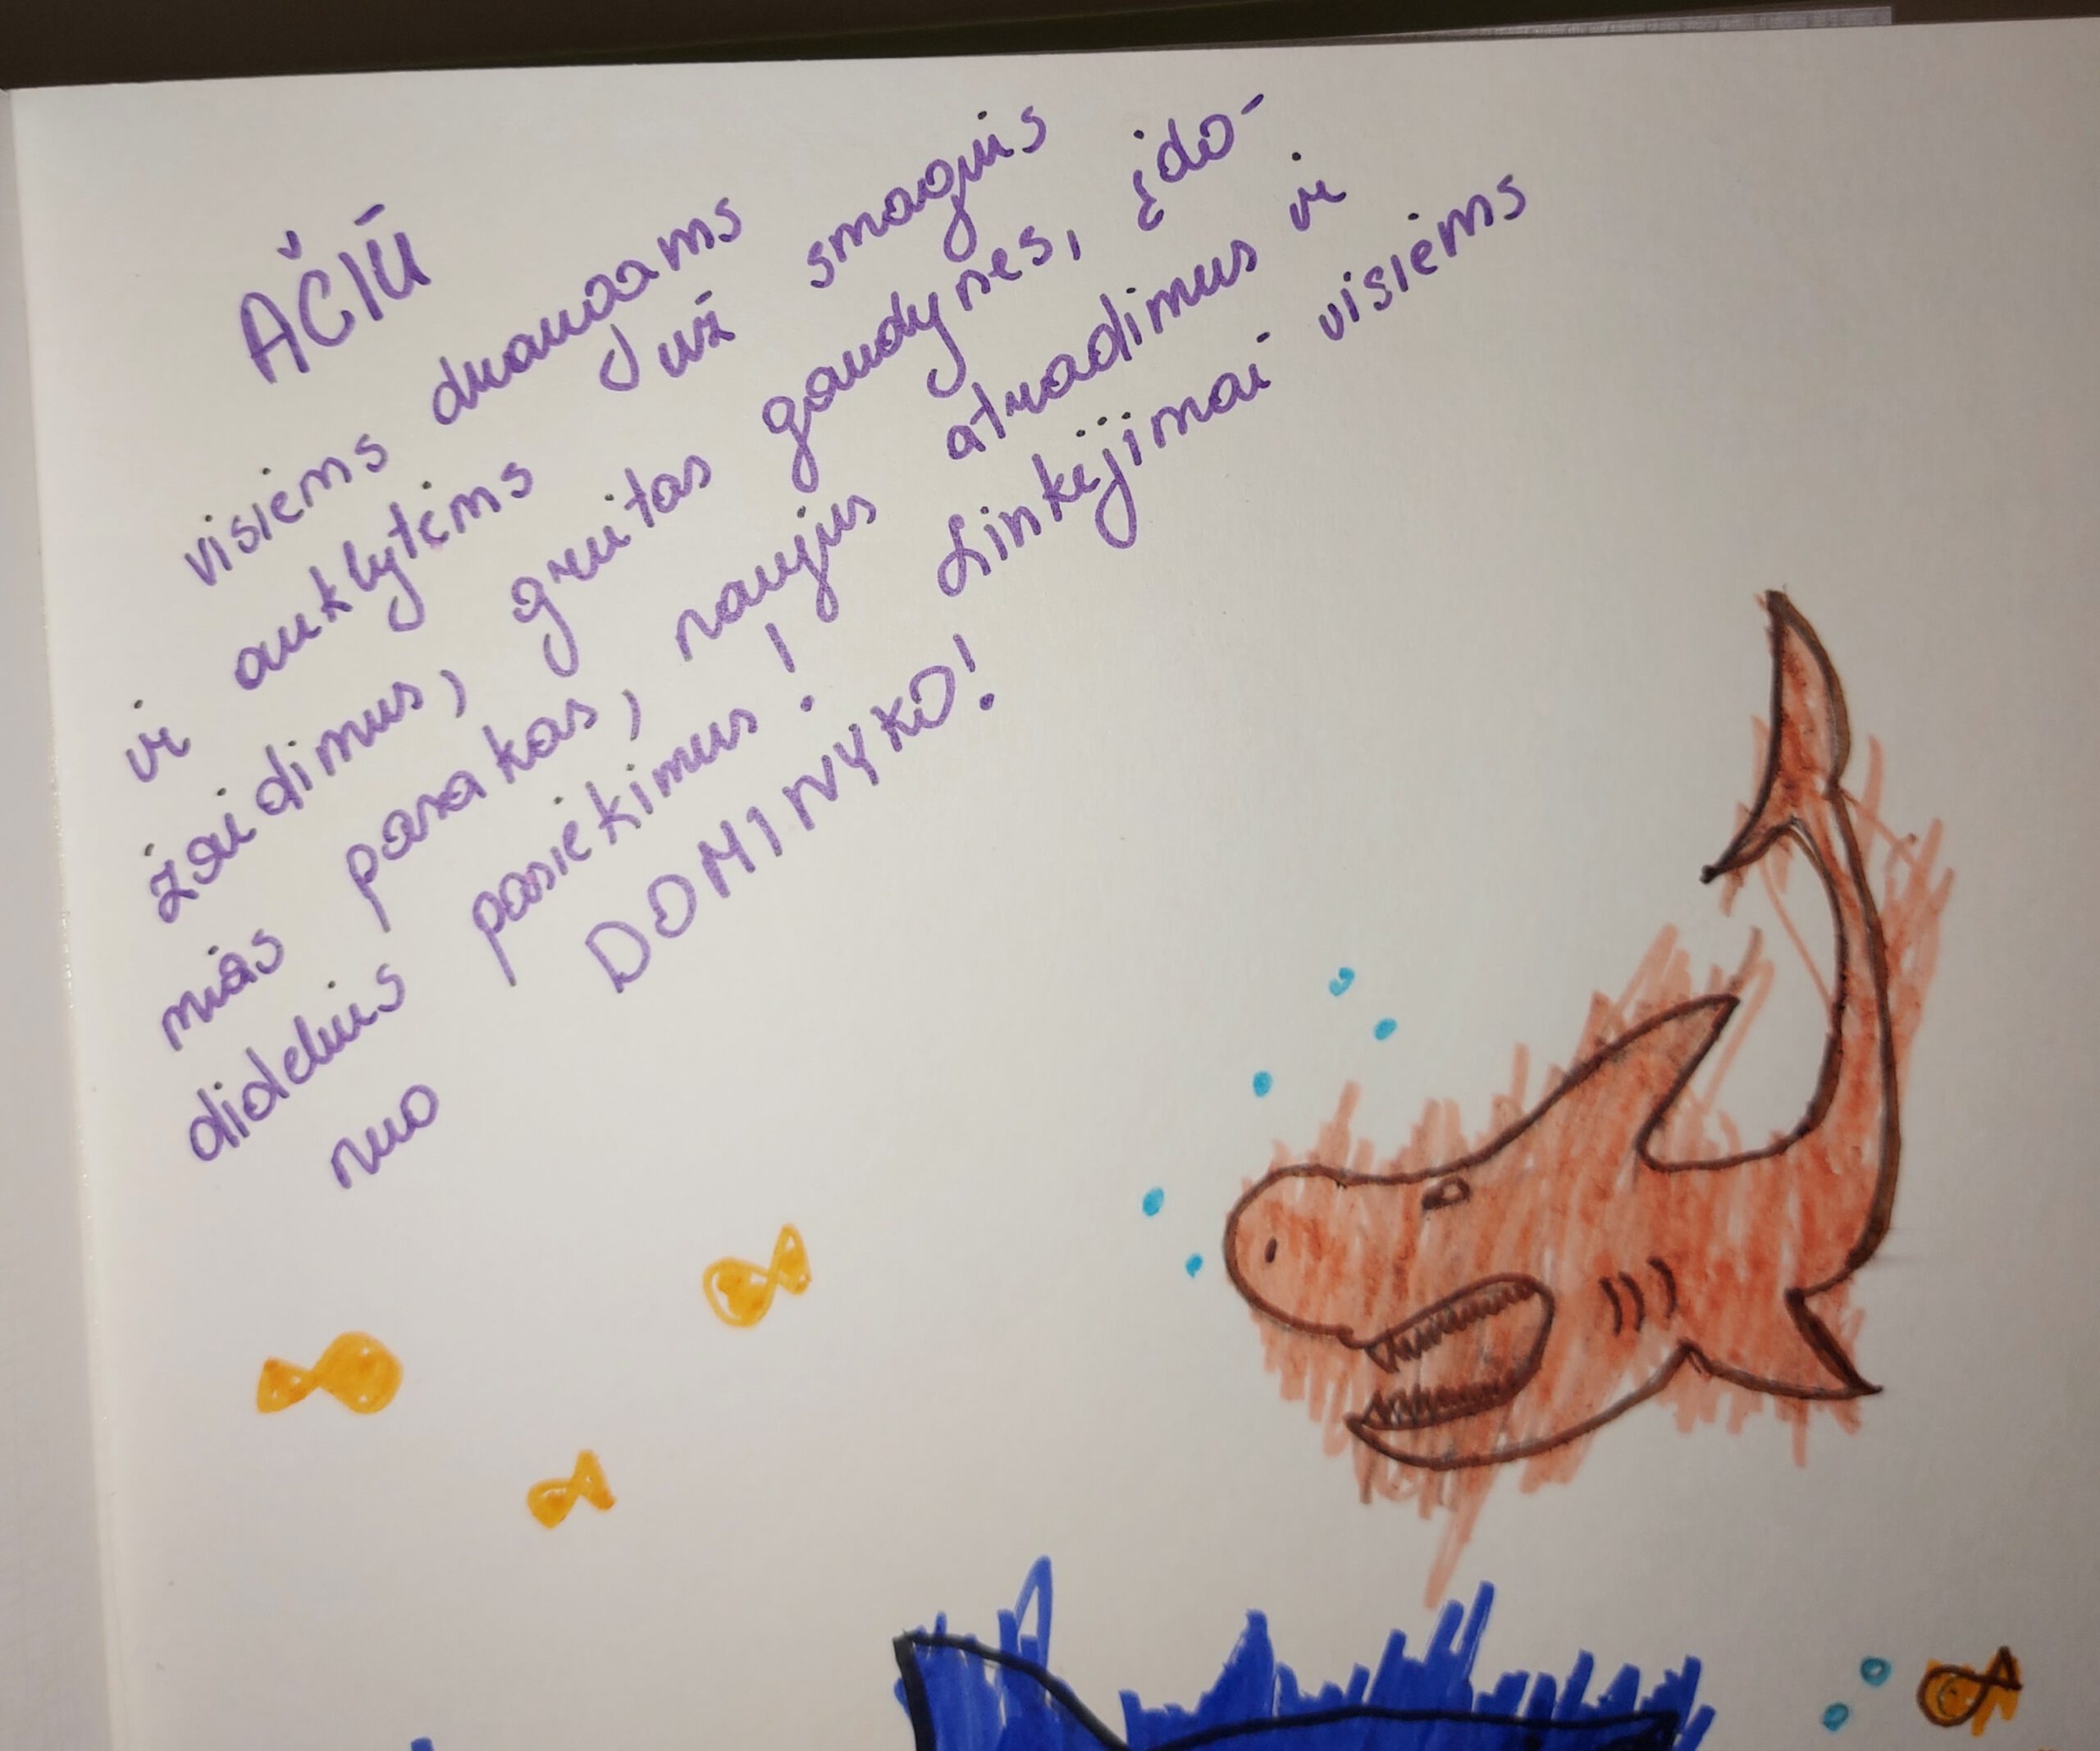 AČIŪ
visiems draugams
ir auklytėms už smagius
žaidimus, greitas gaudynes, įdo-
mias pamokas, naujus atradimus ir
didelius pasiekimus! Linkėjimai visiems
nuo DOMINYKO!